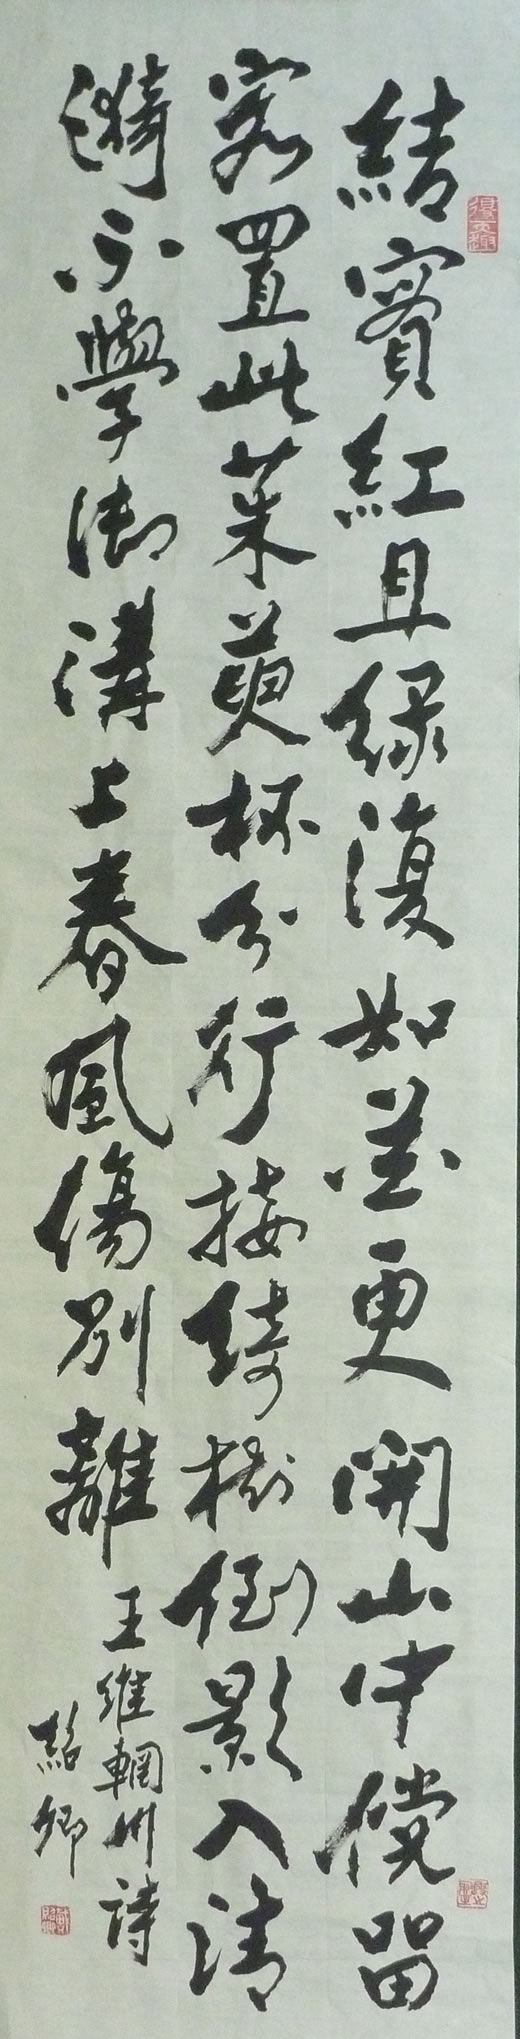 結實紅且緑復如花更開山中儻留
客置此茱萸杯分行接綺樹倒影入清
漪不學御溝上春風傷別離
王維輞川詩